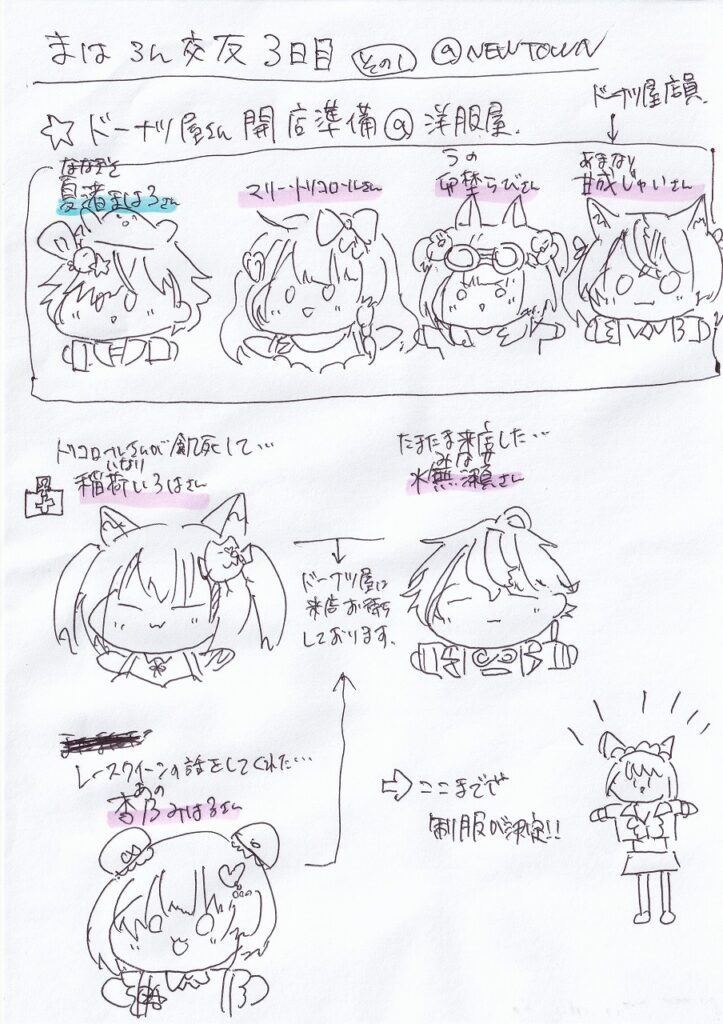 まはろん交友3日目 その1 @NEWTOWN
☆ドーナツ屋さん開店準備@洋服屋.
ドーナツ屋店員.
夏渚まはろさん
マリー・トリコロールさん
うの
卯埜らびさん
あまなり
甘成じゃいさん
トリコロールさんが餓死して…
いなり
稲荷いろはさん
たまたま来店した…
みなせ
水無瀬さん
ドーナツ屋に
来店お待ち
しております.
レースクイーンの話をしてくれた…
あの
杏乃みはるさん
⇨ここまでで
制服が決定!!